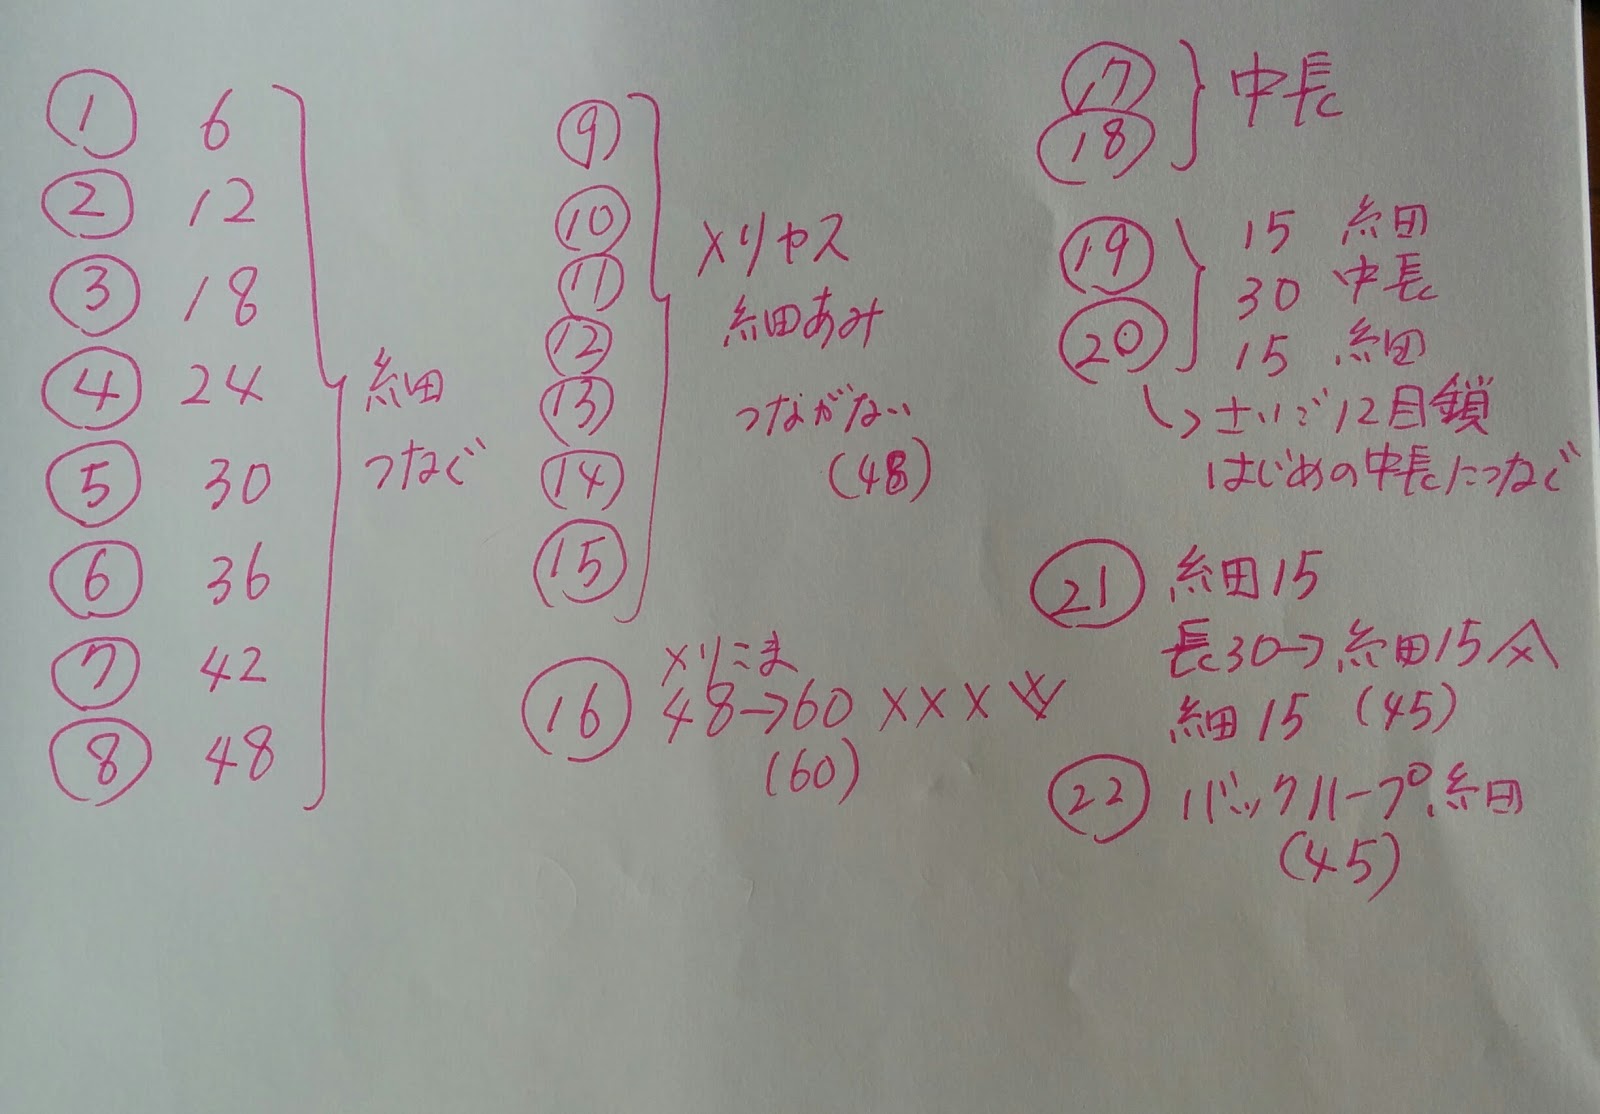 ① 6
② 12
③ 18
④ 24
⑤ 30
⑥ 36
⑦ 42
⑧ 48
細
つなぐ
⑨
⑩
⑪
⑫
⑬
⑭
⑮
メリヤス
細あみ
つながない
(48)
⑯ メリこま
48→60 XXX
(60)
⑰
⑱
中長
⑲
⑳
15 細
30 中長
15 細
→さいご12目鎖
はじめの中長につなぐ
㉑ 細15
長30→細15
細15 (45)
㉒ バックループ細
(45)